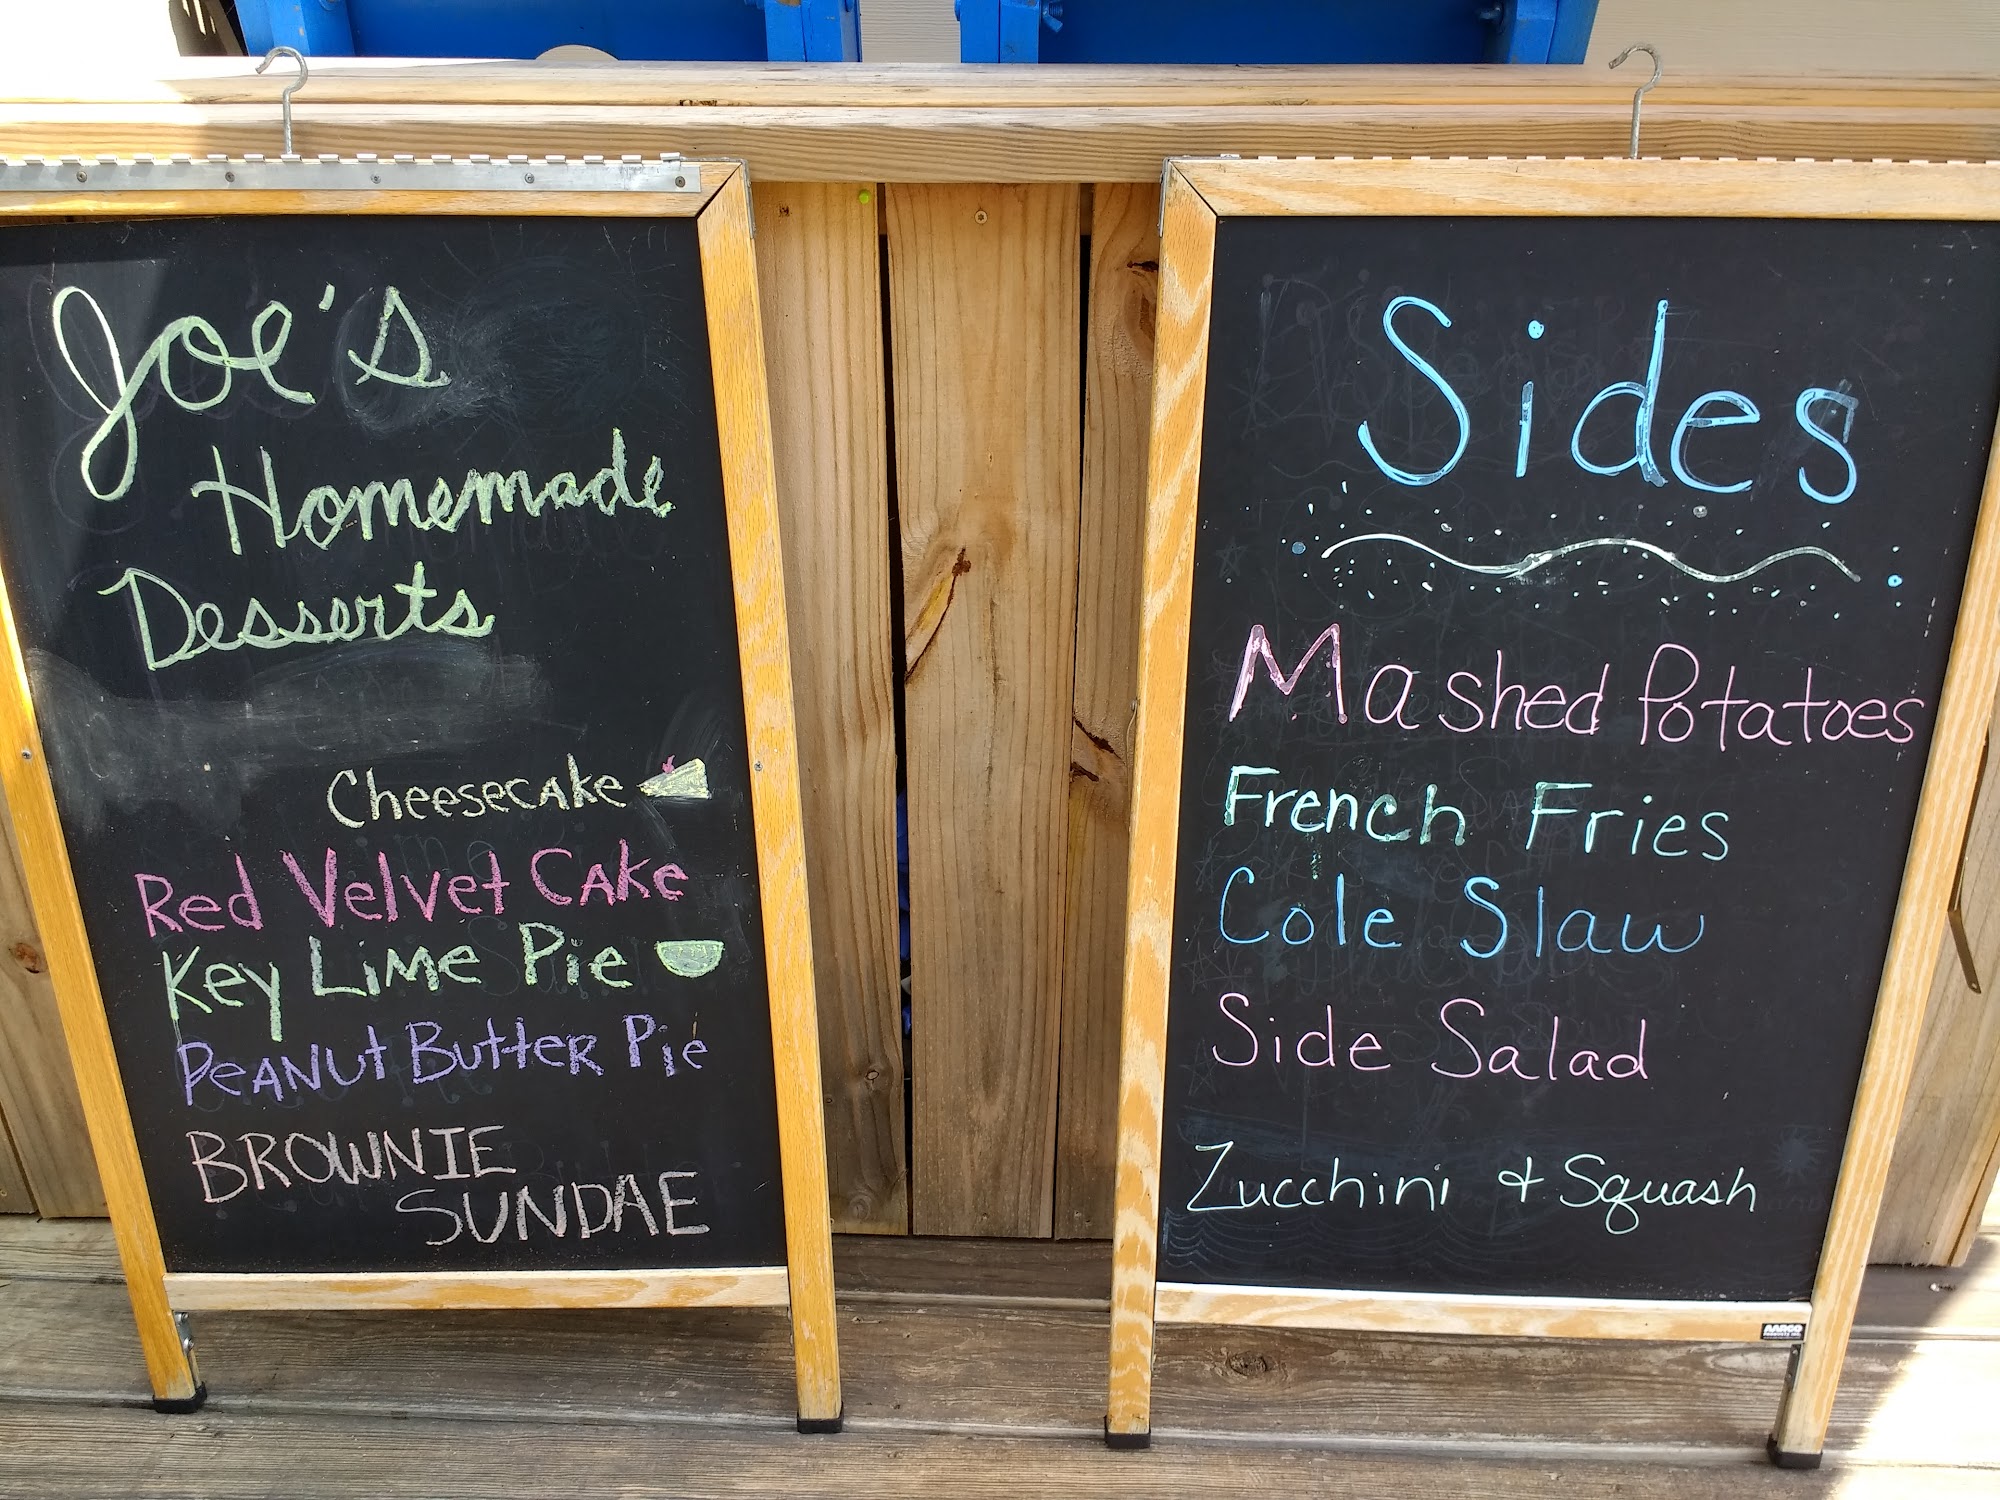 Joe's
Homemade
Desserts
Cheesecake
Red Velvet Cake
Key Lime Pie
Peanut Butter Pie
BROWNIE
SUNDAE
Sides
Mashed Potatoes
French Fries
Cole Slaw
Side Salad
Zucchini & Squash
AARCO